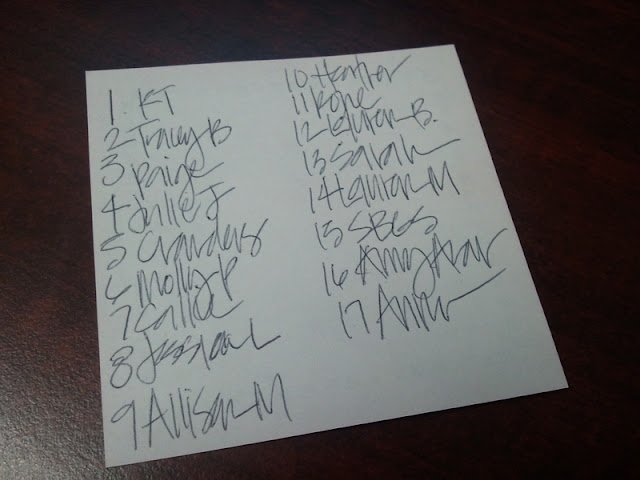 1. KT
2 Tracey B
3 Paige
4 Julie J
5
6 Molly P
7 Callie
8 Jessica L
9 Allison M
10 Heather
11
12 Lauren B.
13 Sarah
14 Lauren M
15 SBGS
16 Amy
17